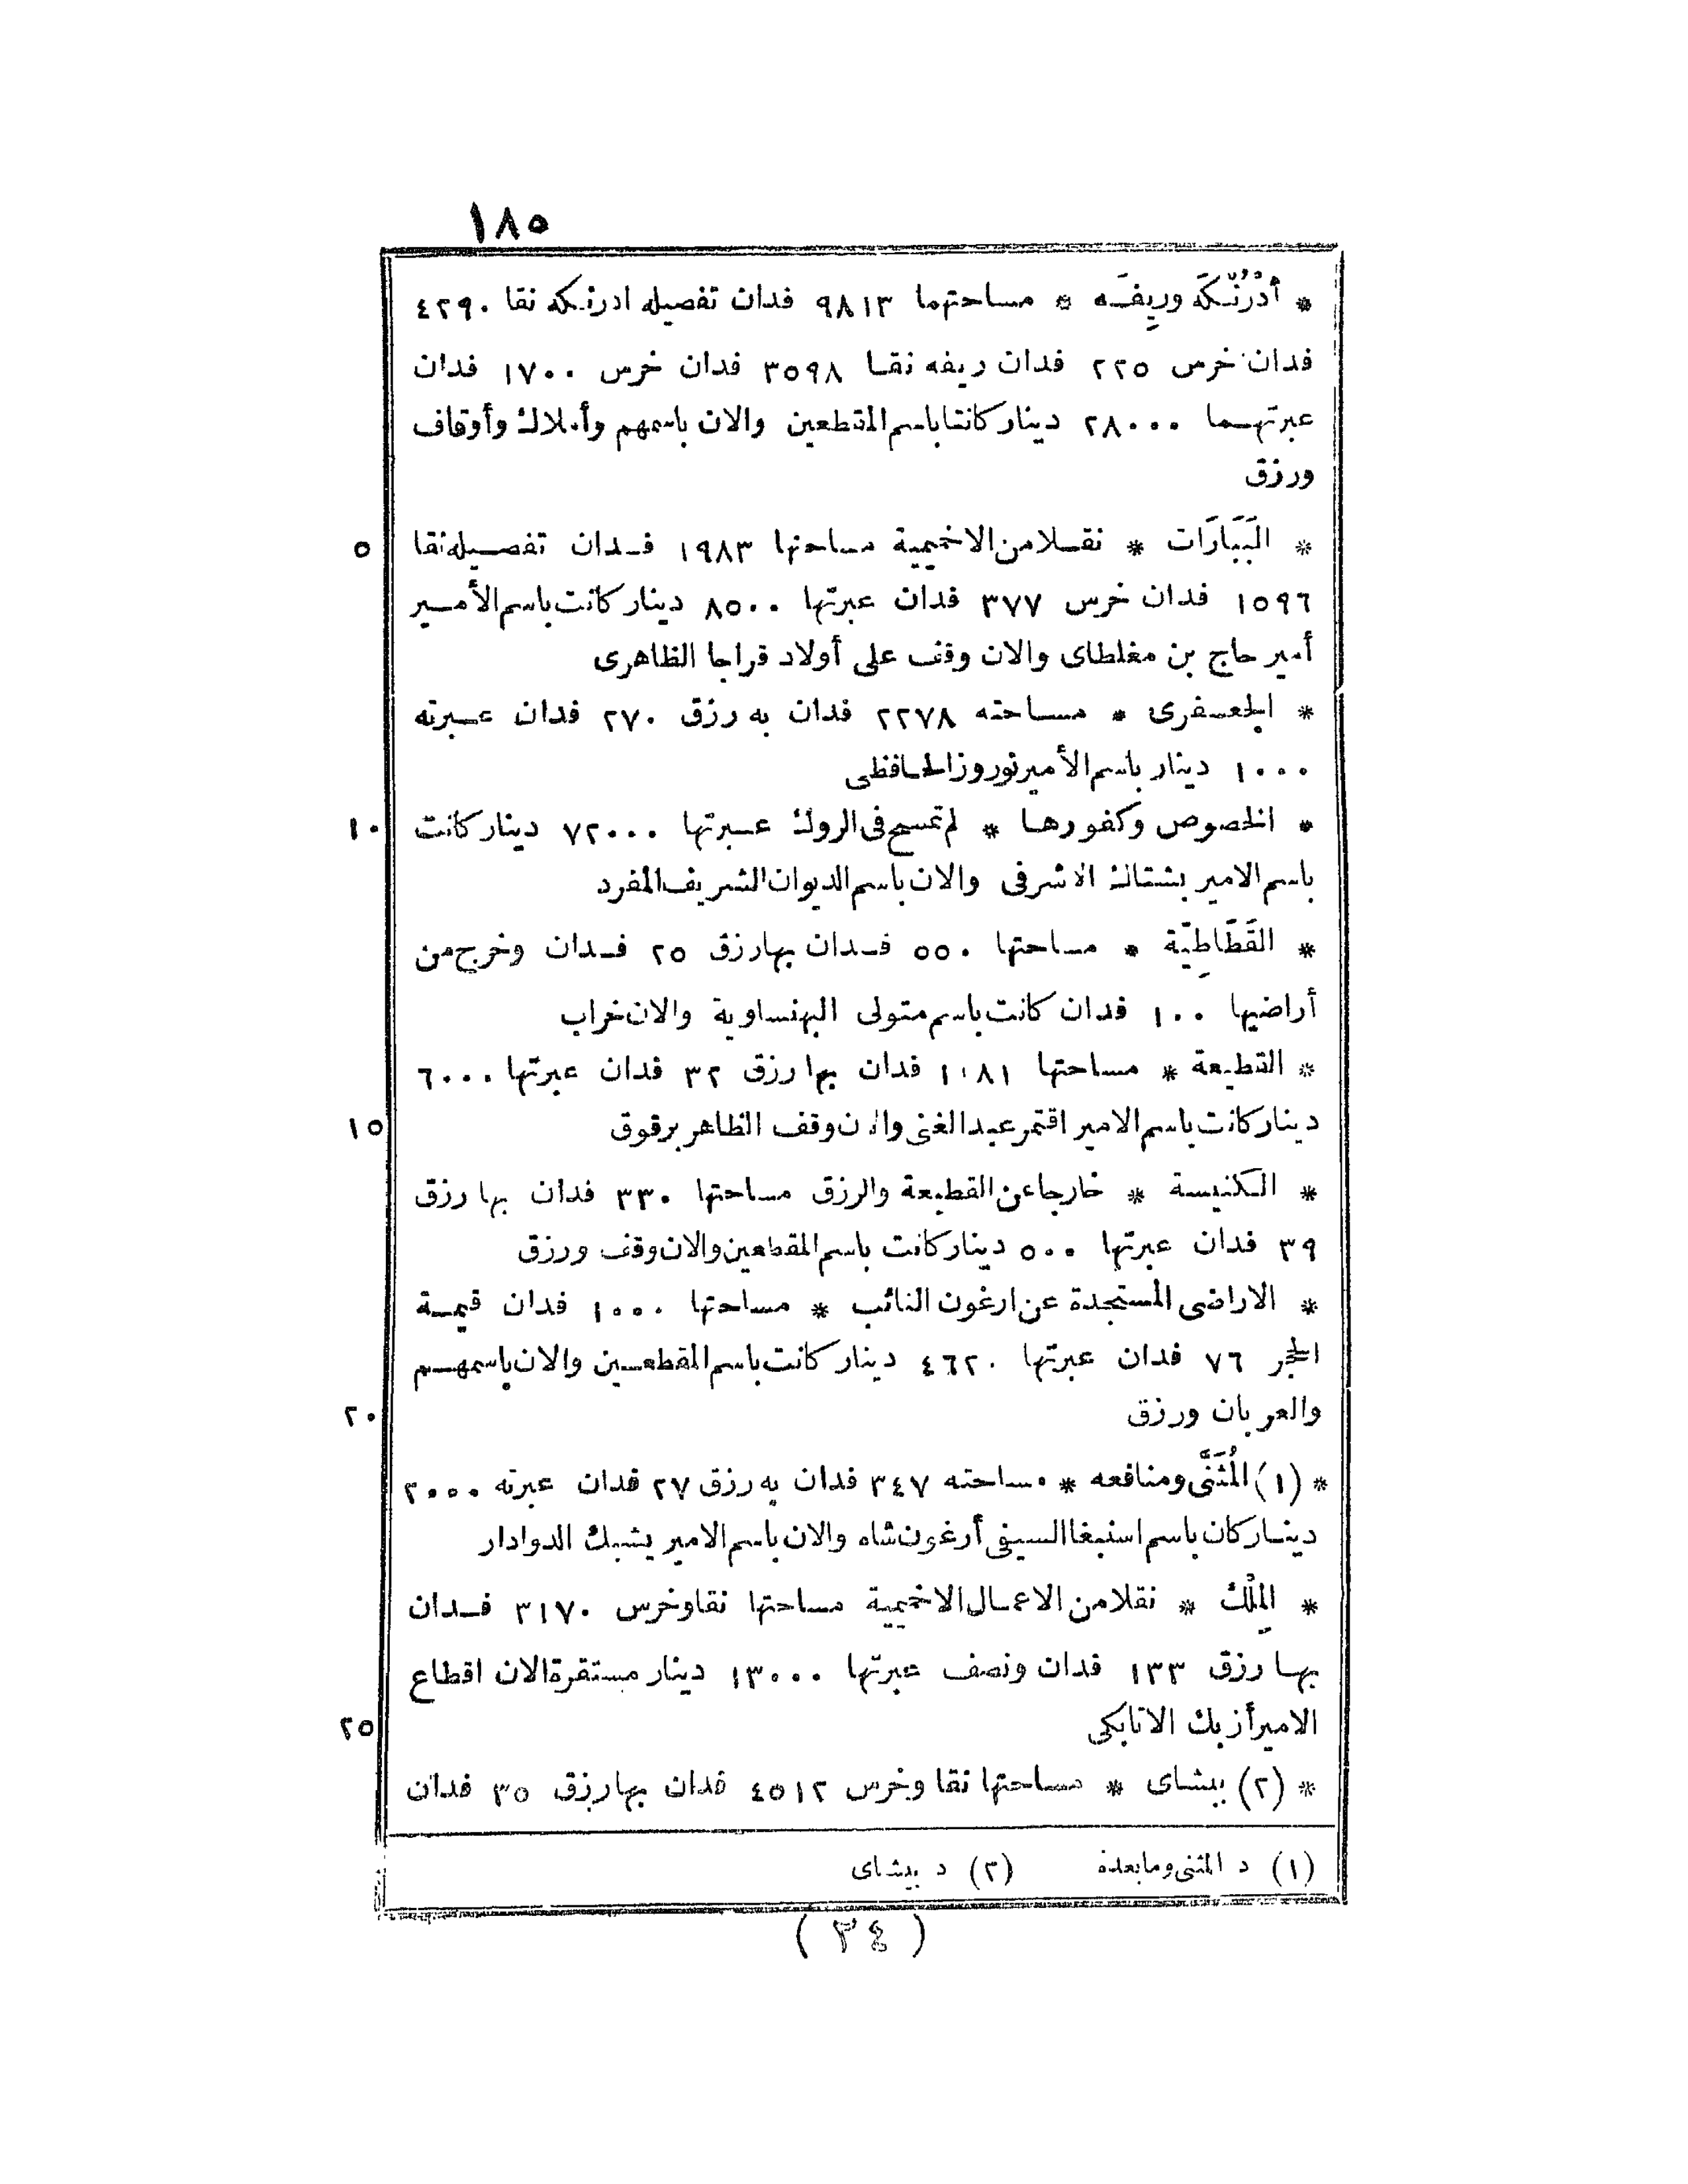 ١٨٥
* أُدْرُنْكَه ورِيفَه * مساحتهما ٩٨١٣ فدان تفصيله ادرنكه نقا ٤٢٩٠
فدان خرس ٢٢٥ فدان ريفه نقا ٣٥٩٨ فدان خرس ١٧٠٠ فدان
عبرتهما ٢٨٠٠٠ دينار كانتا باسم المقطعين والان باسمهم وأملاك وأوقاف
ورزق
* البَبَارَات * نقلا من الاخميمية مساحتها ١٩٨٣ فدان تفصيله نقا ٥
١٥٩٦ فدان خرس ٣٧٧ فدان عبرتها ٨٥٠٠ دينار كانت باسم الأمير
أمير حاج بن مغلطاى والان وقف على أولاد قراجا الظاهرى
* الجعفرى * مساحته ٢٢٧٨ فدان به رزق ٢٧٠ فدان عبرته
١٠٠٠ دينار باسم الأمير نوروز الحافظى
* الخصوص وكفورها * لم تمسح فى الروك عبرتها ٧٢٠٠٠ دينار كانت ١٠
باسم الامير بشتاك الاشرفى والان باسم الديوان الشريف المفرد
* القَطَاطِيّة * مساحتها ٥٥٠ فدان بها رزق ٢٥ فدان وخرج من
أراضيها ١٠٠ فدان كانت باسم متولى البهنساوية والان خراب
* القطيعة * مساحتها ١٠٨١ فدان بها رزق ٣٢ فدان عبرتها ٦٠٠٠
دينار كانت باسم الامير اقتمر عبد الغنى والان وقف الظاهر برقوق ١٥
* الكنيسة * خارجا عن القطيعة والرزق مساحتها ٣٣٠ فدان بها رزق
٣٩ فدان عبرتها ٥٠٠ دينار كانت باسم المقطعين والان وقف ورزق
* الاراضى المستجدة عن ارغون النائب * مساحتها ١٠٠٠ فدان قيمة
الحجر ٧٦ فدان عبرتها ٤٦٢٠ دينار كانت باسم المقطعين والان باسمهم
والعربان ورزق ٢٠
* (١) المُثَنَّى ومنافعه * مساحته ٣٤٧ فدان به رزق ٢٧ فدان عبرته ٢٠٠٠
دينار كان باسم اسنبغا السيفى أرغون شاه والان باسم الامير يشبك الدوادار
* المِلْك * نقلا من الاعمال الاخميمية مساحتها نقا وخرس ٣١٧٠ فدان
بها رزق ١٣٣ فدان ونصف عبرتها ١٣٠٠٠ دينار مستقرة الان اقطاع
الامير أزبك الاتابكى ٢٥
* (٢) بيشاى * مساحتها نقا وخرس ٤٥١٢ فدان بها رزق ٣٥ فدان
(١) د المثنى وما بعده (٢) د بيشاى
(٢٤)